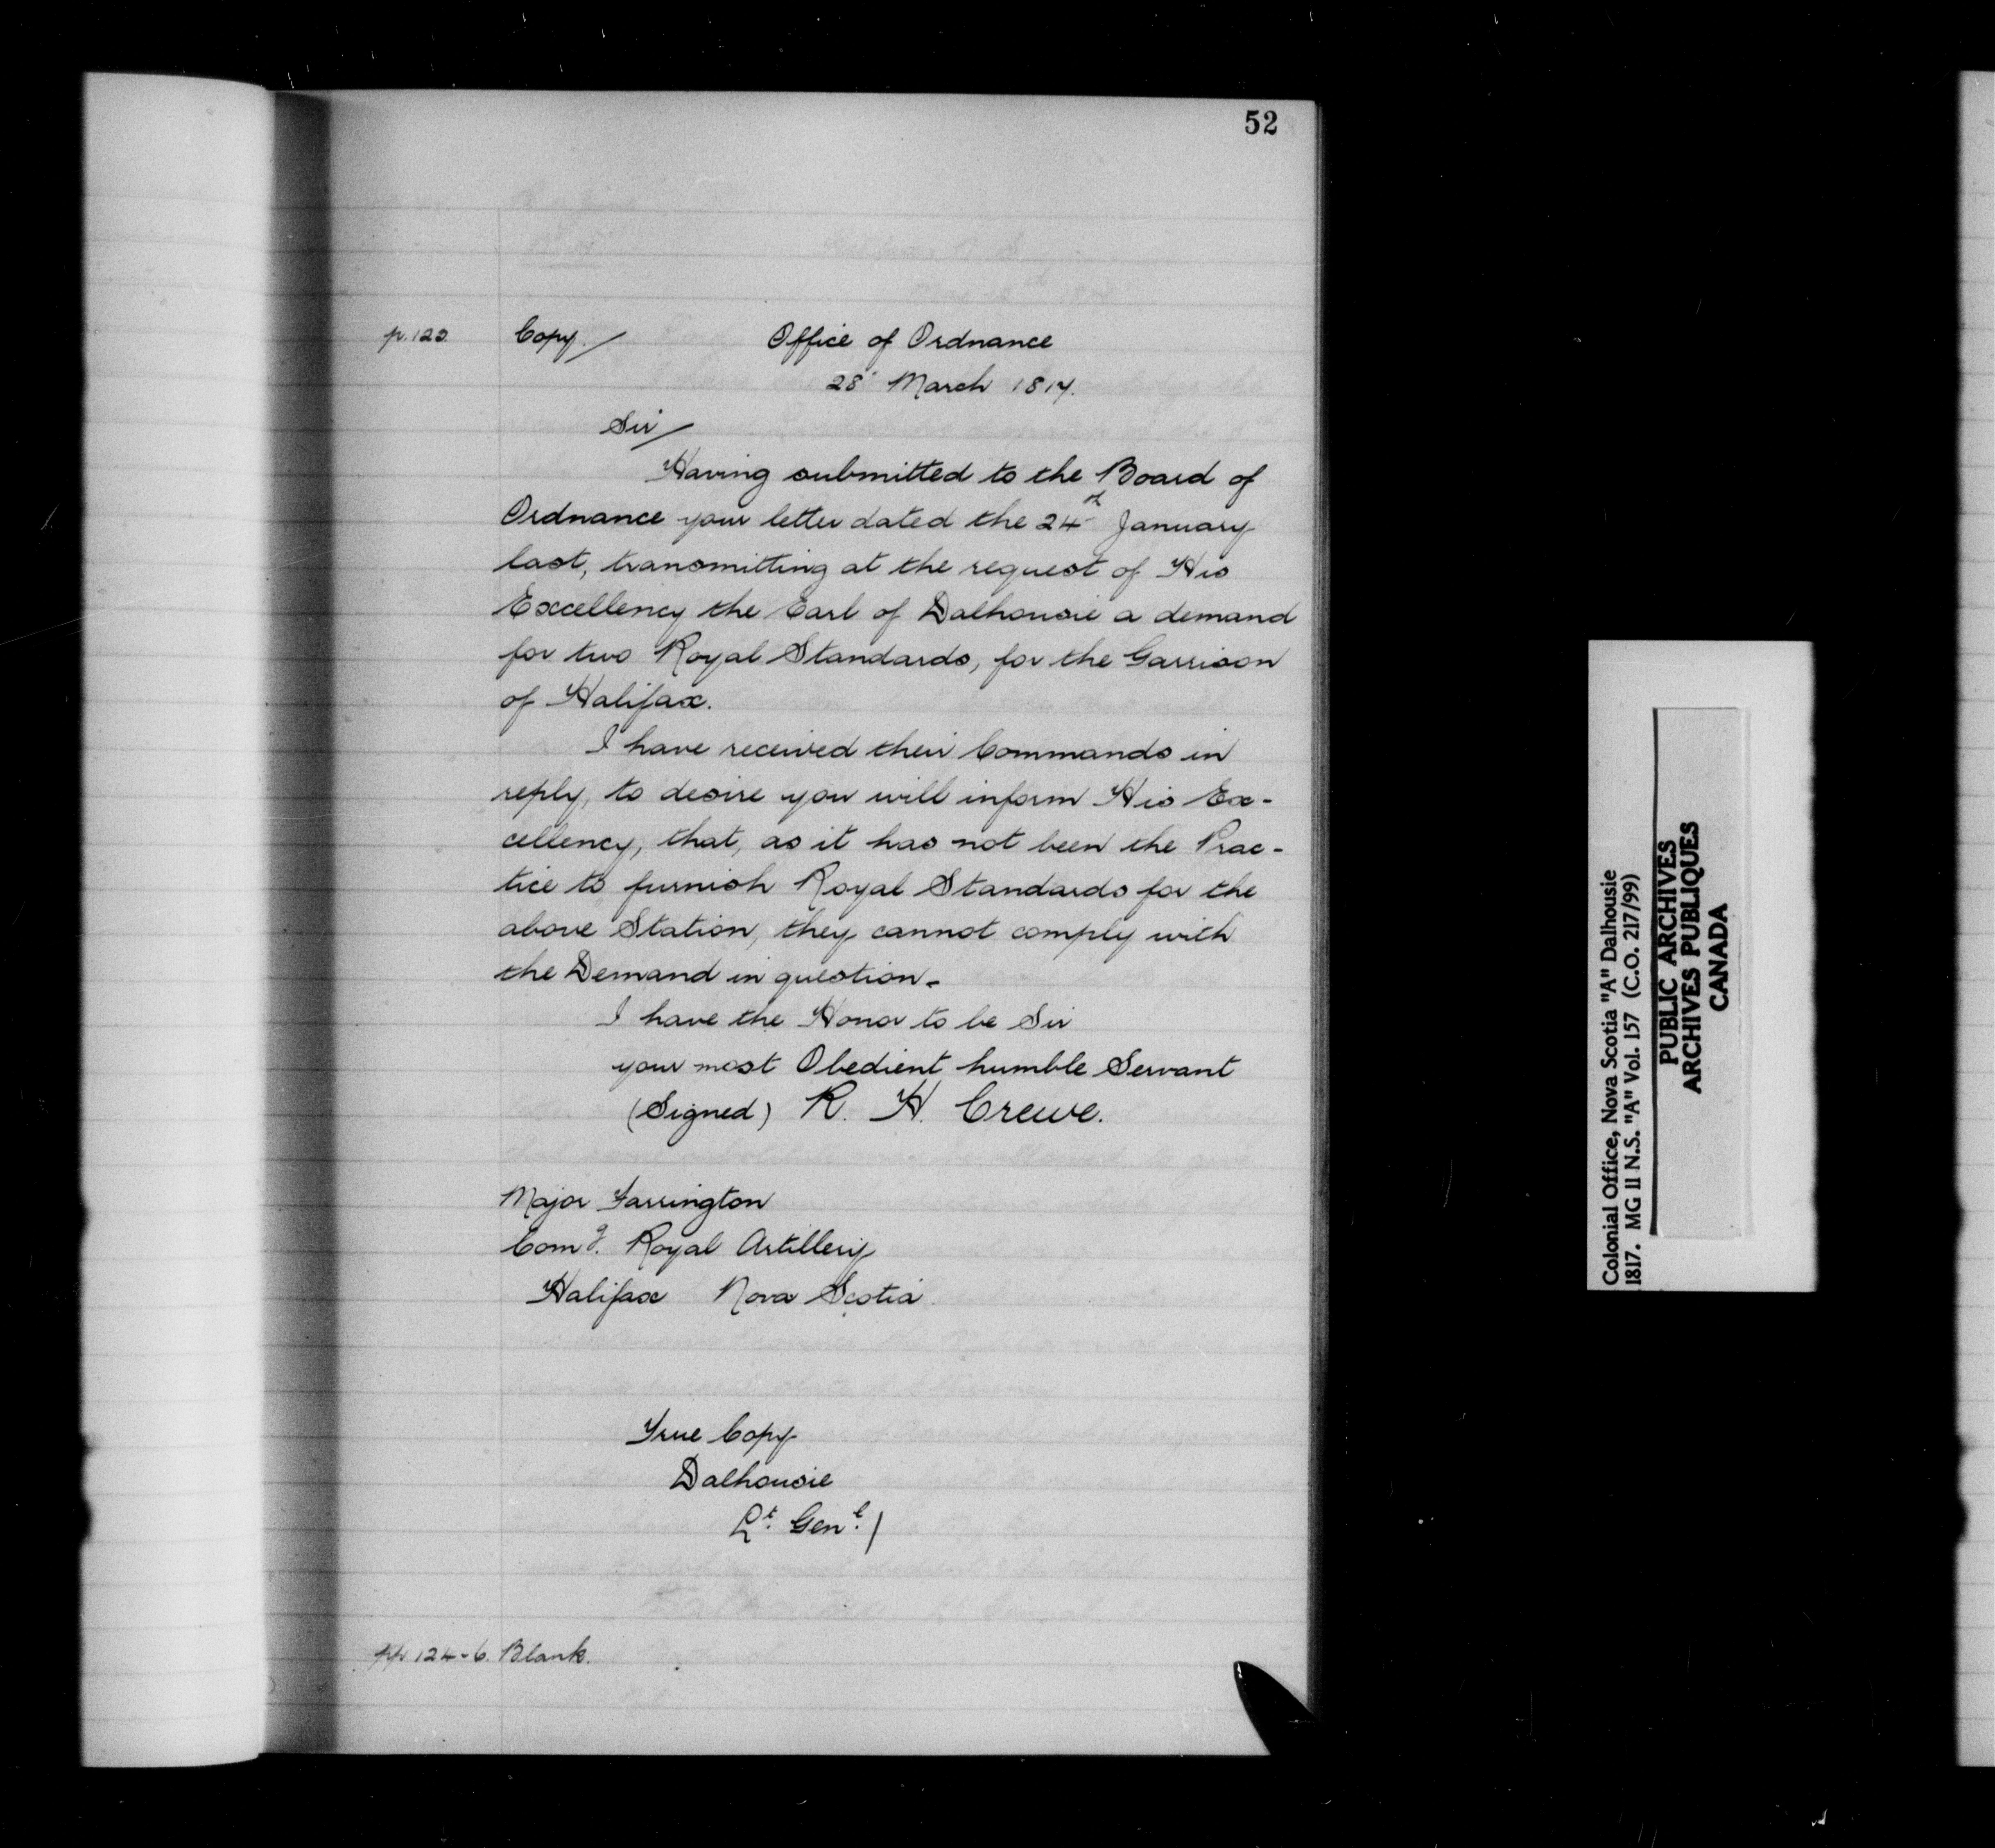 52
p. 123. Copy./ Office of Ordnance
28' March 1817.
Sir/
Having submitted to the Board of
Ordnance your letter dated the 24th January
last, transmitting at the request of His
Excellency the Earl of Dalhousie a demand
for two Royal Standards, for the Garrison
of Halifax.
I have received their Commands in
reply, to desire you will inform His Ex-
cellency, that, as it has not been the Prac-
tice to furnish Royal Standards for the
above Station, they cannot comply with
the Demand in question.
I have the Honor to be Sir
your most Obedient humble Servant
(Signed) R. H. Crewe.
Major Farrington
Comg. Royal Artillery
Halifax Nova Scotia
True Copy
Dalhousie
Lt. Genl. /
pp. 124-6. Blank.
Colonial Office, Nova Scotia "A" Dalhousie
1817. MG 11 N.S. "A" Vol. 157 (C.O. 217/99)
PUBLIC ARCHIVES
ARCHIVES PUBLIQUES
CANADA